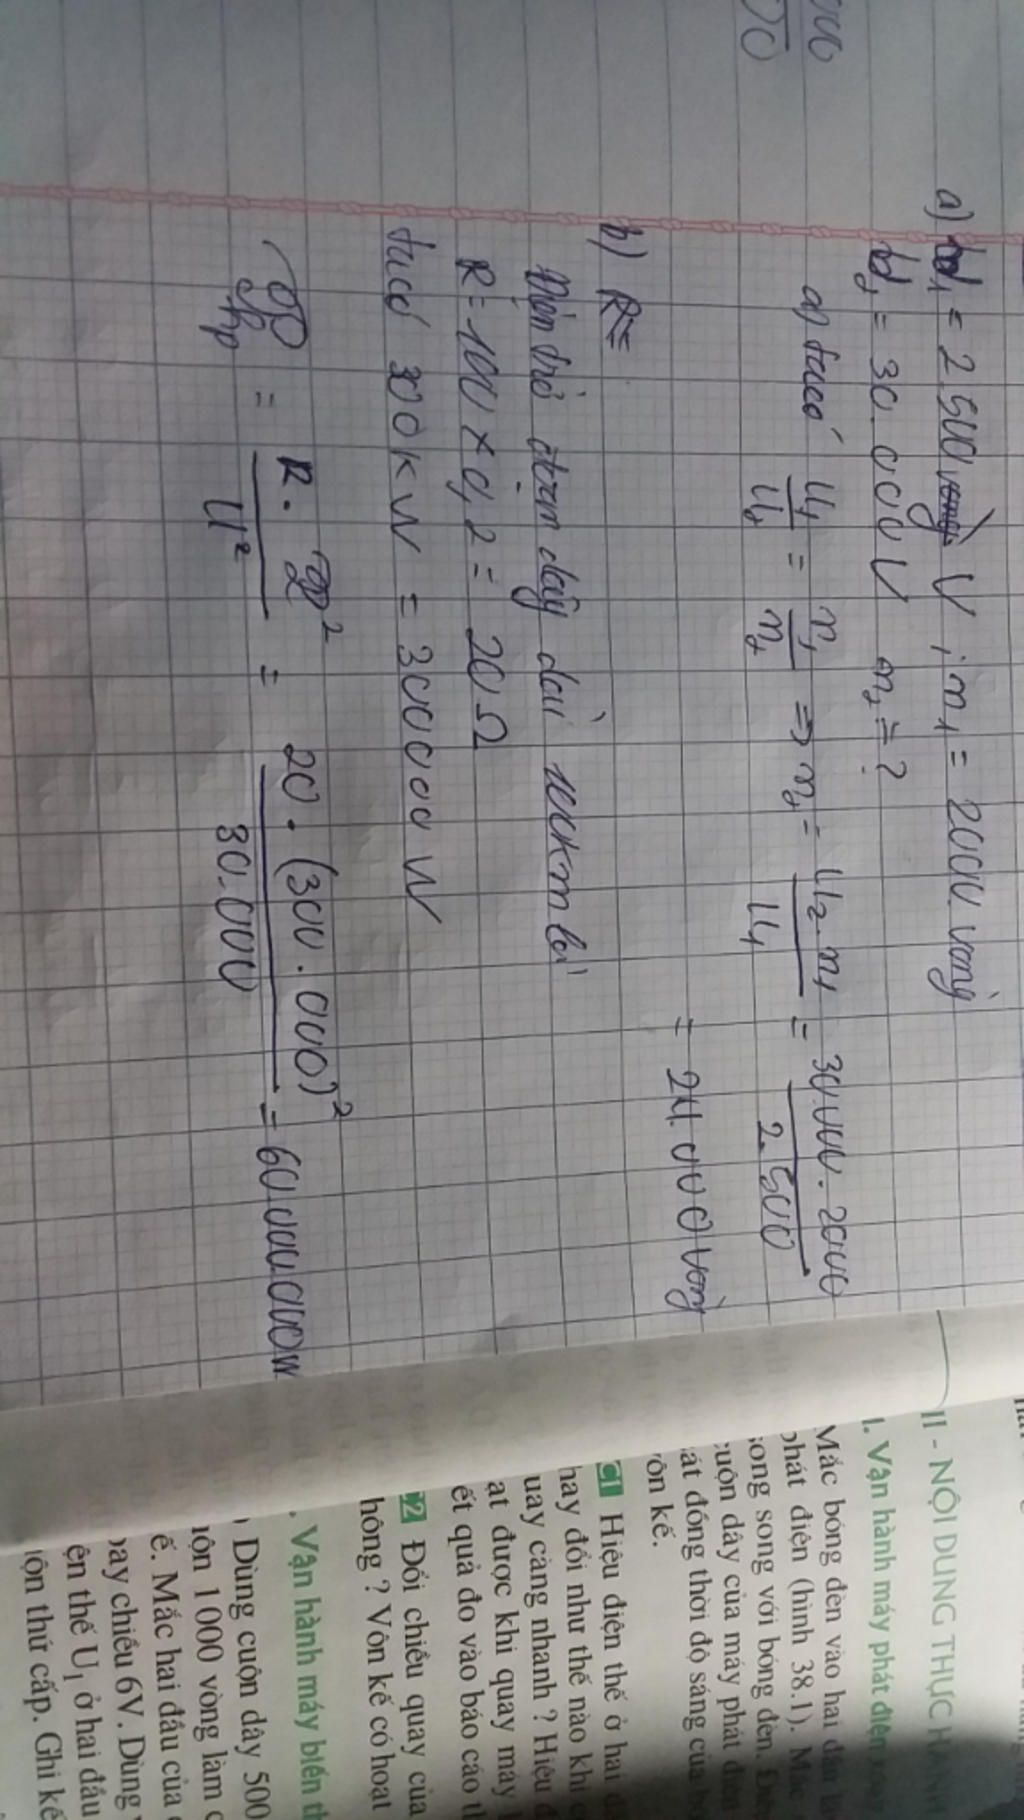 a) U₁ = 2500 V ; n₁ = 2000 vòng
U₂ = 30.000 V n₂ = ?
a) ta có U₁/U₂ = n₁/n₂ => n₂ = U₂.n₁/U₁ = 30000.2000/2.500
= 24.000 vòng
b) R =
Điện trở đoạn dây dài 100km là
R = 100 x 0,2 = 20 Ω
ta có 300KW = 300000 W
𝒫hp = R.𝒫²/U² = 20.(300.000)²/30.000 = 60.000.000W
II - NỘI DUNG THỰC HÀNH
1. Vận hành máy phát điện
Mắc bóng đèn vào hai đầu
phát điện (hình 38.1). Mắc
song song với bóng đèn.
cuộn dây của máy phát điện
sát đồng thời độ sáng của
vôn kế.
C1 Hiệu điện thế ở hai
thay đổi như thế nào khi
quay càng nhanh ? Hiệu
ạt được khi quay máy
ết quả đo vào báo cáo
C2 Đổi chiều quay của
không ? Vôn kế có hoạt
. Vận hành máy biến
Dùng cuộn dây 500
1000 vòng làm
ế. Mắc hai đầu của
xoay chiều 6V. Dùng
ện thế U₁ ở hai đầu
uộn thứ cấp. Ghi kế